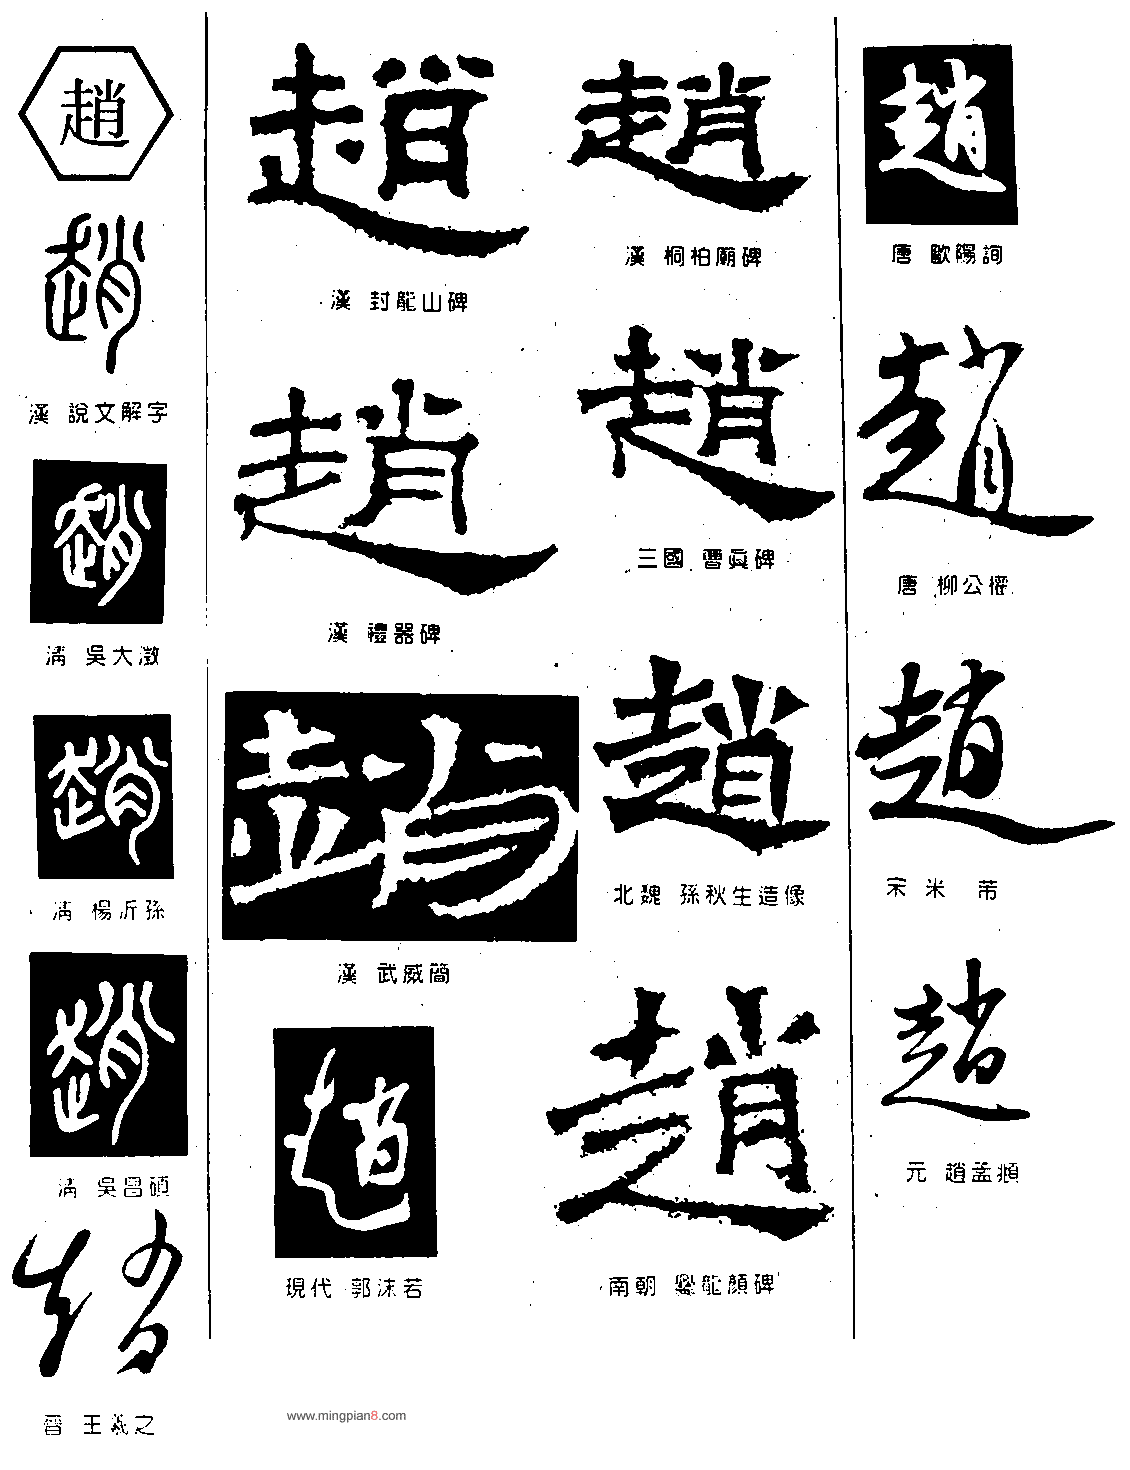 趙
趙
漢 說文解字
趙
清 吳大澂
趙
清 楊沂孫
趙
清 吳昌碩
趙
晉 王羲之
趙
漢 封龍山碑
趙
漢 禮器碑
趙
漢 武威簡
趙
現代 郭沫若
趙
漢 桐柏廟碑
趙
三國 曹真碑
趙
北魏 孫秋生造像
趙
南朝 爨龍顏碑
趙
唐 歐陽詢
趙
唐 柳公權
趙
宋 米 芾
趙
元 趙孟頫
www.mingpian8.com